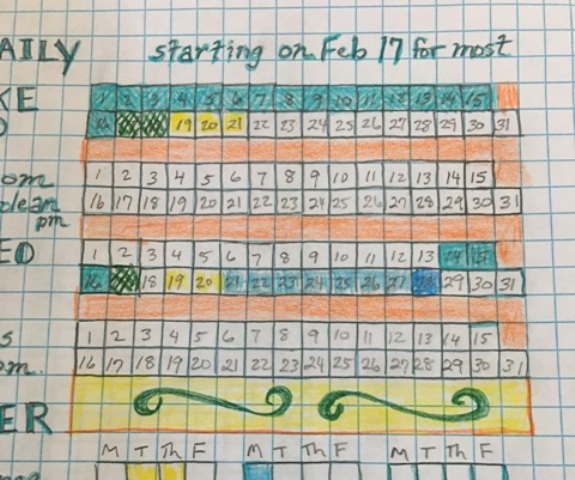 AILY starting on Feb 17 for most
KE 1 2 3 4 5 6 7 8 9 10 11 12 13 14 15
16 19 20 21 22 23 24 25 26 27 28 29 30 31
om 1 2 3 4 5 6 7 8 9 10 11 12 13 14 15
clean 16 17 18 19 20 21 22 23 24 25 26 27 28 29 30 31
pm
ED 1 2 3 4 5 6 7 8 9 10 11 12 13 14 15
16 18 19 20 21 22 23 24 25 26 27 28 29 30 31
s 1 2 3 4 5 6 7 8 9 10 11 12 13 14 15
om. 16 17 18 19 20 21 22 23 24 25 26 27 28 29 30 31
ER
M T Th F M T Th F M T Th F